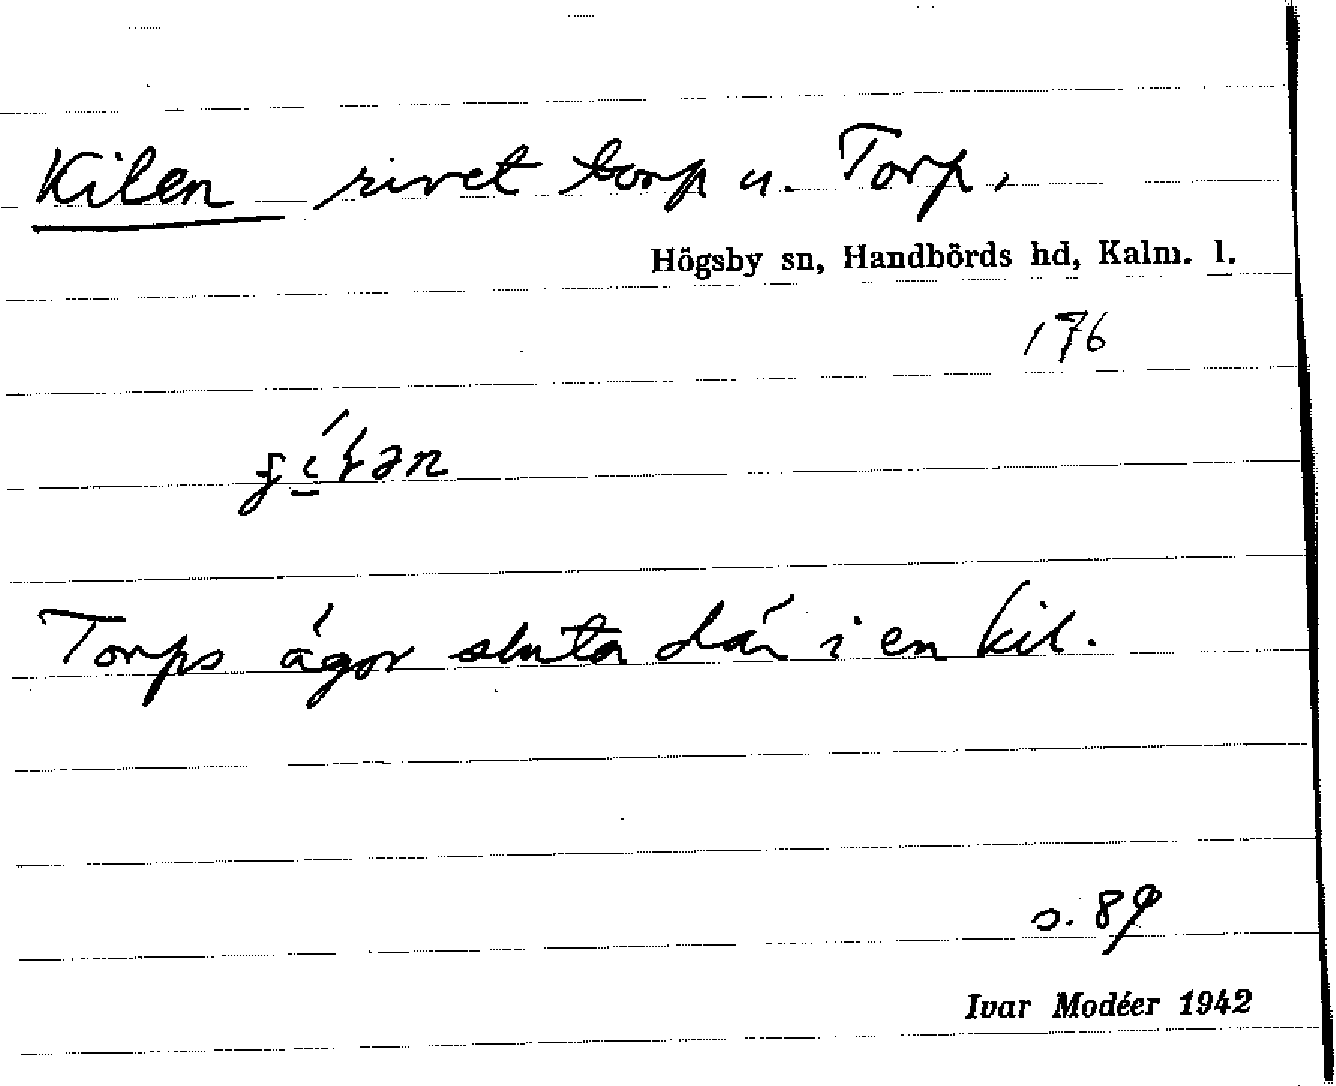 Kilen rivet torp u. Torp.
Högsby sn, Handbörds hd, Kalm. l.
176
Torps ägor sluta där i en kil.
s. 89
Ivar Modéer 1942